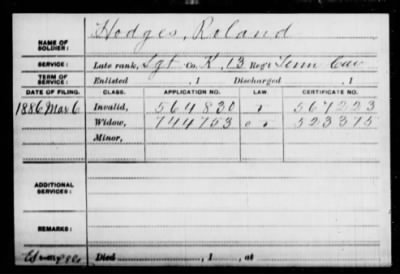 NAME OF SOLDIER: Hodges, Roland
SERVICE: Late rank, Sgt Co. K, 13 Reg't Tenn Cav
TERM OF SERVICE: Enlisted , 1 Discharged , 1
DATE OF FILING. CLASS. APPLICATION NO. LAW. CERTIFICATE NO.
1886 Mar 6 Invalid, 564830 567223
Widow, 744753 523375
Minor,
ADDITIONAL SERVICES:
REMARKS:
Died , 1 , at